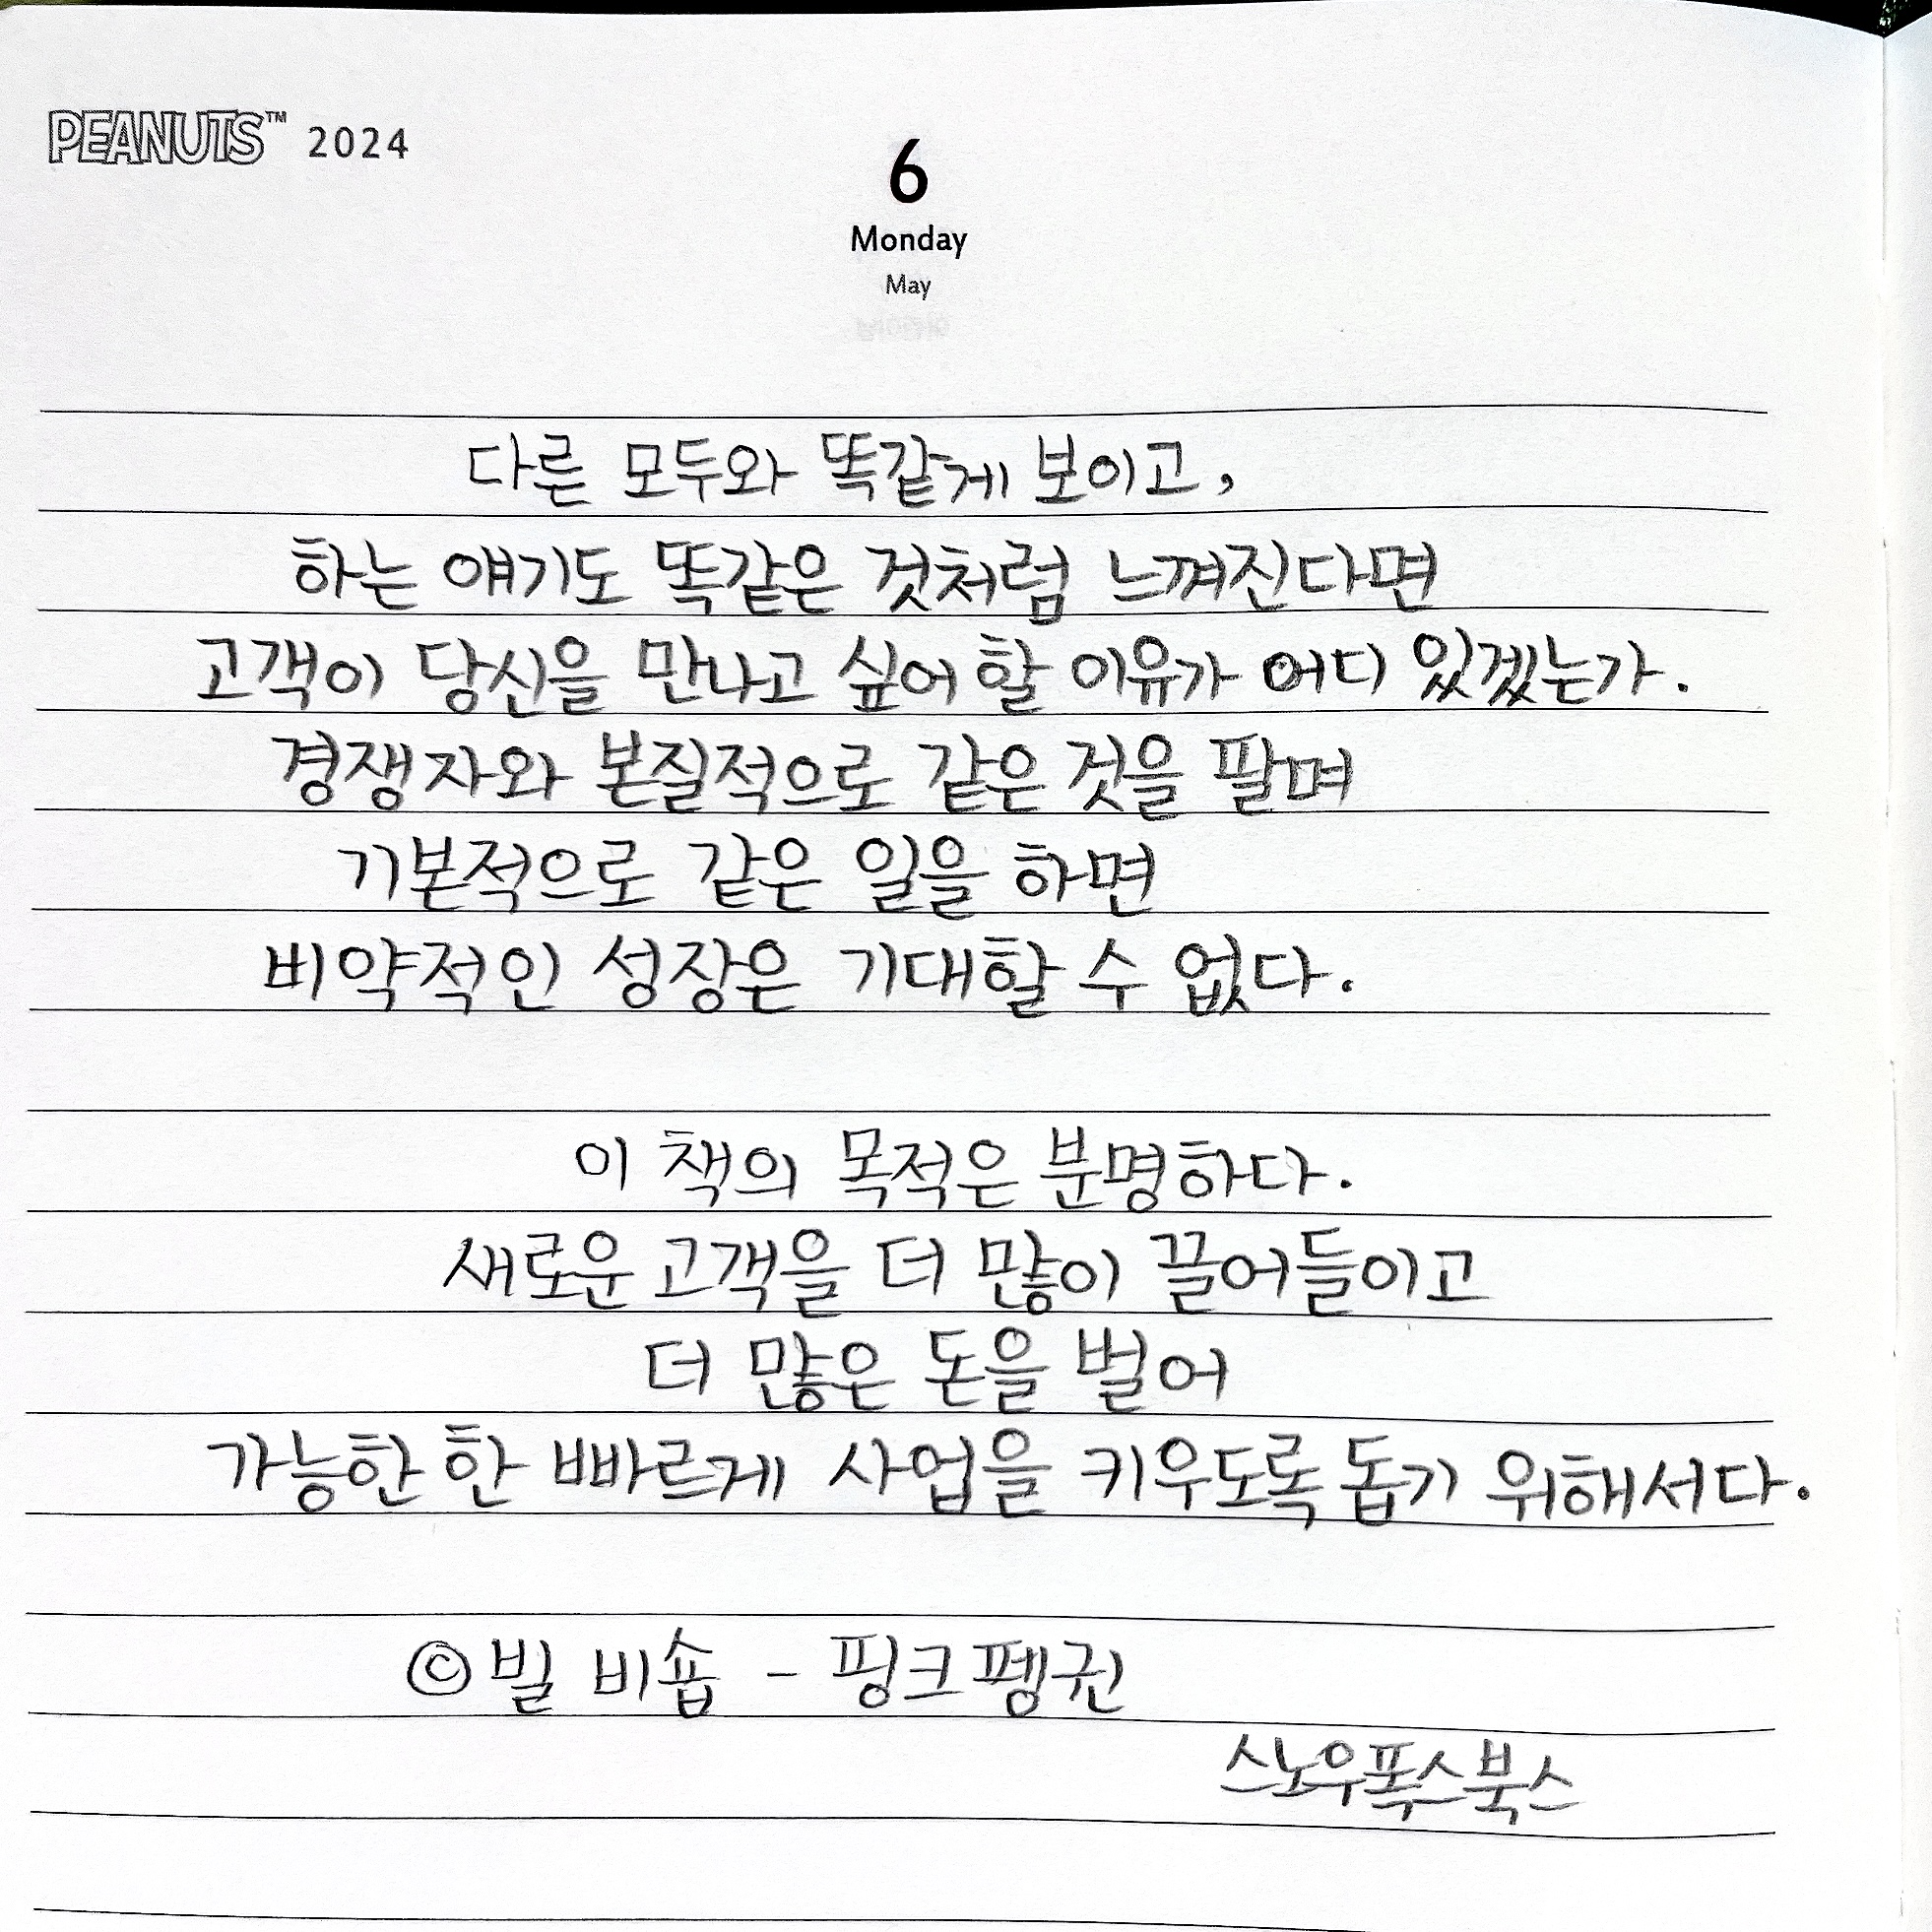 PEANUTS™ 2024
6
Monday
May
다른 모두와 똑같게 보이고,
하는 얘기도 똑같은 것처럼 느껴진다면
고객이 당신을 만나고 싶어 할 이유가 어디 있겠는가.
경쟁자와 본질적으로 같은 것을 팔며
기본적으로 같은 일을 하면
비약적인 성장은 기대할 수 없다.
이 책의 목적은 분명하다.
새로운 고객을 더 많이 끌어들이고
더 많은 돈을 벌어
가능한 한 빠르게 사업을 키우도록 돕기 위해서다.
©빌 비숍 - 핑크펭귄
스노우폭스북스